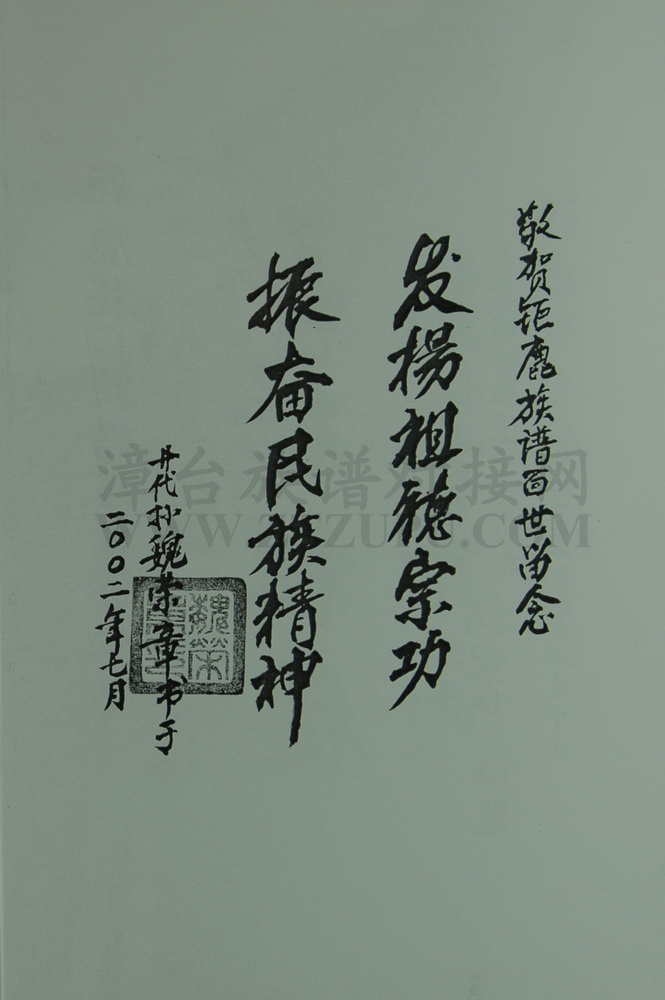 敬贺钜鹿族谱百世留念
发揚祖德宗功
振奋民族精神
廿代孙魏荣章书于
二00二年七月
魏荣章
漳台族谱对接网